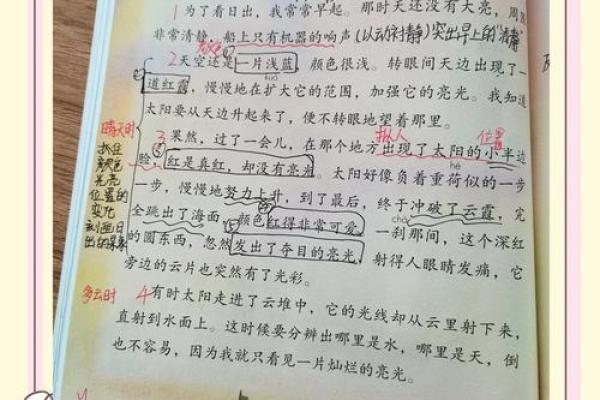 1为了看日出，我常常早起。那时天还没有大亮，周
非常清静，船上只有机器的响声(以动衬静)突出早上的"清静"
颜色
2天空还是一片浅蓝，颜色很浅。转眼间天边出现了一
kuò
道红霞，慢慢地在扩大它的范围，加强它的亮光。我知道
太阳要从天边升起来了，便不转眼地望着那里。
拟人 位置
3果然，过了一会儿，在那个地方出现了太阳的小半边
hè
脸，③红是真红，却没有亮光。太阳好像负着重荷似的一步
一步，慢慢地努力上升，到了最后，终于冲破了云霞，完
chà
全跳出了海面，④颜色红得非常可爱。一刹那间，这个深红
的圆东西，⑤忽然发出了夺目的亮光，射得人眼睛发痛，它
旁边的云片也突然有了光彩。
4有时太阳走进了云堆中，它的光线却从云里射下来，
直射到水面上。这时候要分辨出哪里是水，哪里是天，倒
也不容易，因为我就只看见一片灿烂的亮光。
晴天时
抓住
颜色
亮光
位置的
变化
刻画日
出的景象
多云时